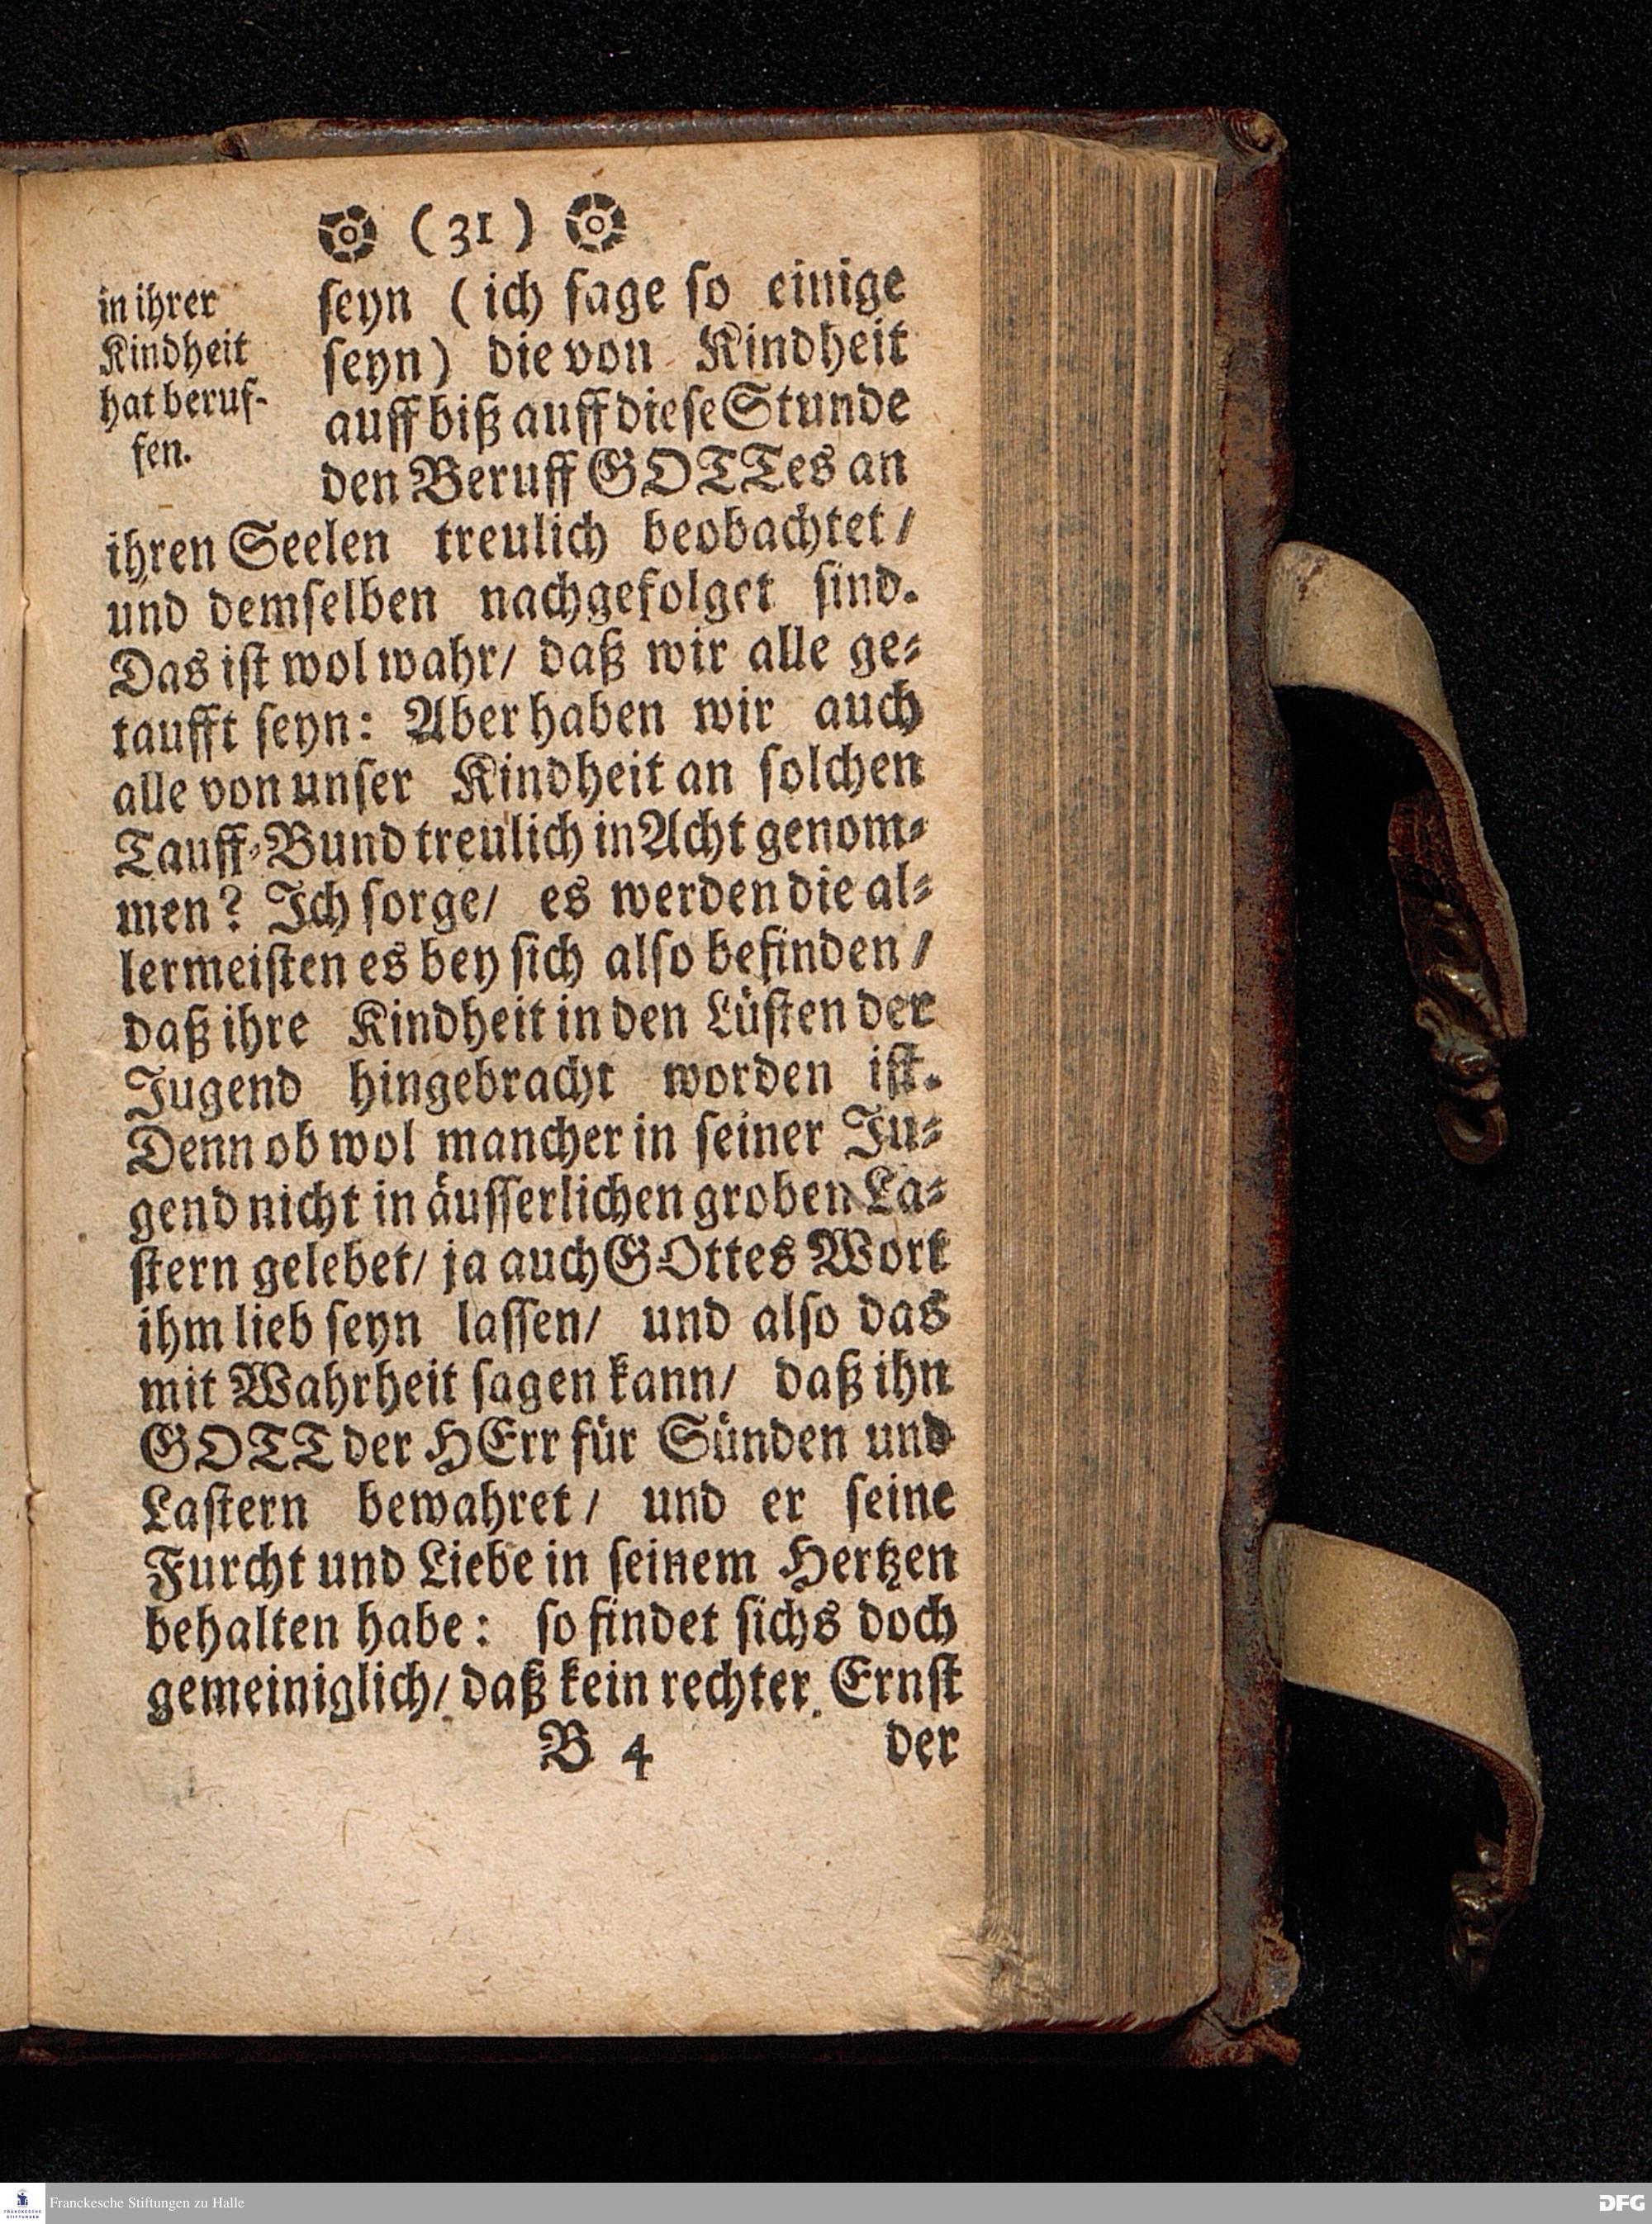 ( 31 )
in ihrer
Kindheit
hat beruf-
fen.
ſeyn (ich ſage ſo einige
ſeyn) die von Kindheit
auff biß auff dieſe Stunde
den Beruff GOTTes an
ihren Seelen treulich beobachtet/
und demſelben nachgefolget ſind.
Das iſt wol wahr/ daß wir alle ge-
taufft ſeyn: Aber haben wir auch
alle von unſer Kindheit an ſolchen
Tauff-Bund treulich in Acht genom-
men? Ich ſorge/ es werden die al-
lermeiſten es bey ſich alſo befinden/
daß ihre Kindheit in den Lüſten der
Jugend hingebracht worden iſt.
Denn ob wol mancher in ſeiner Ju-
gend nicht in äuſſerlichen groben La-
ſtern gelebet/ ja auch GOttes Wort
ihm lieb ſeyn laſſen/ und alſo das
mit Wahrheit ſagen kann/ daß ihn
GOTT der HErr für Sünden und
Laſtern bewahret/ und er ſeine
Furcht und Liebe in ſeinem Hertzen
behalten habe: ſo findet ſichs doch
gemeiniglich/ daß kein rechter Ernſt
B 4 der
Franckesche Stiftungen zu Halle
DFG